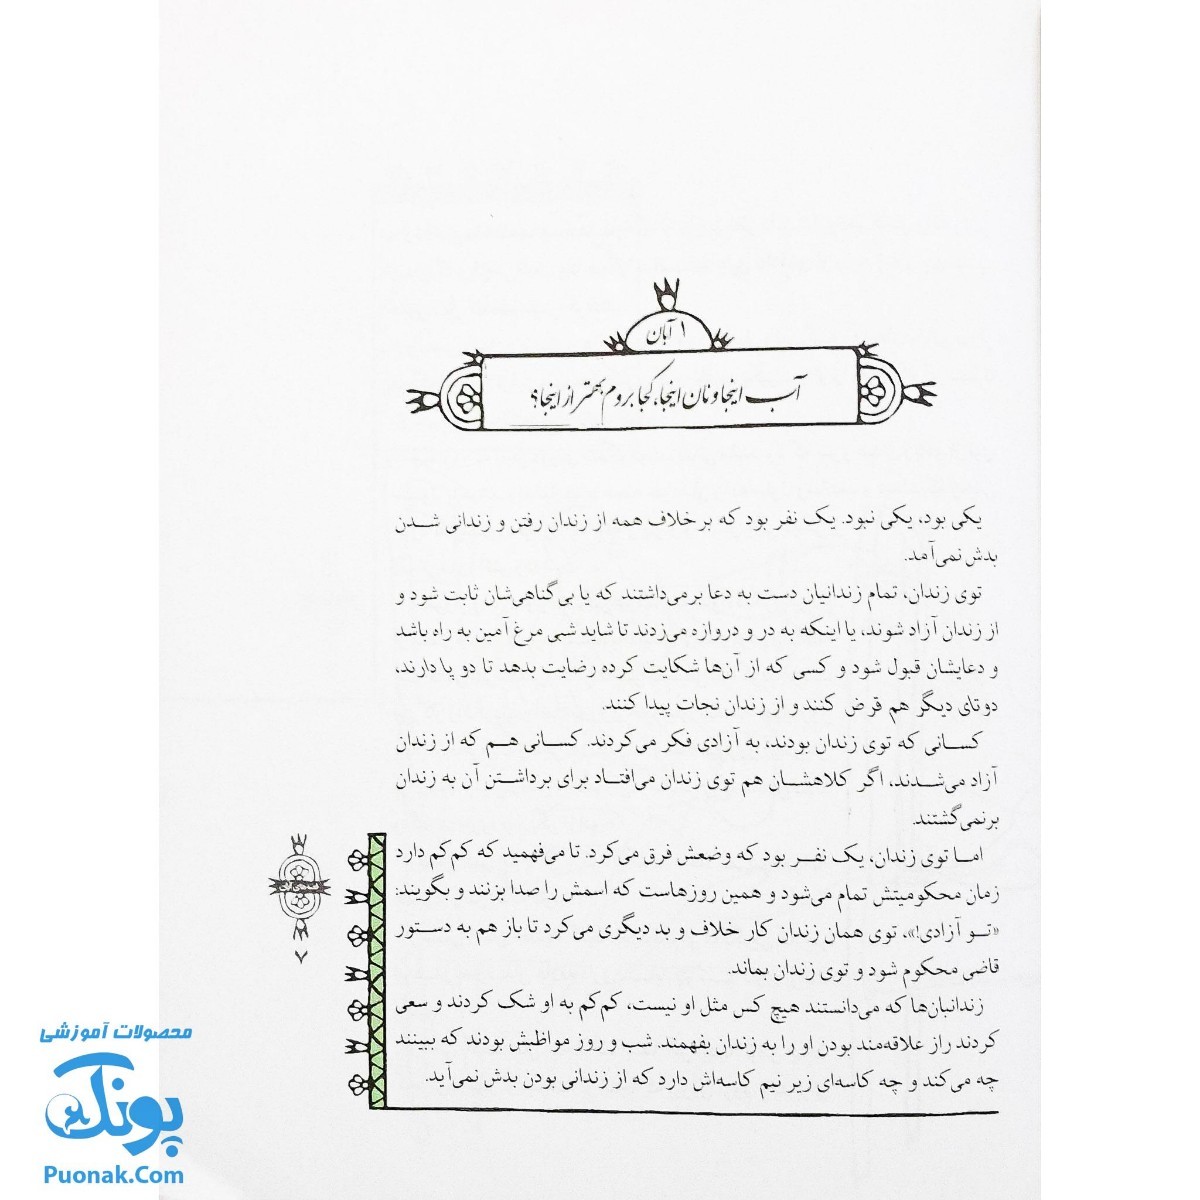 ۱ آبان
آب اینجا و نان اینجا، کجا بروم بهتر از اینجا؟
یکی بود، یکی نبود. یک نفر بود که برخلاف همه از زندان رفتن و زندانی شدن
بدش نمی‌آمد.
توی زندان، تمام زندانیان دست به دعا برمی‌داشتند که یا بی‌گناهی‌شان ثابت شود و
از زندان آزاد شوند، یا اینکه به در و دروازه می‌زدند تا شاید شبی مرغ آمین به راه باشد
و دعایشان قبول شود و کسی که از آن‌ها شکایت کرده رضایت بدهد تا دو پا دارند،
دوتای دیگر هم قرض کنند و از زندان نجات پیدا کنند.
کسانی که توی زندان بودند، به آزادی فکر می‌کردند. کسانی هم که از زندان
آزاد می‌شدند، اگر کلاهشان هم توی زندان می‌افتاد برای برداشتن آن به زندان
برنمی‌گشتند.
اما توی زندان، یک نفر بود که وضعش فرق می‌کرد. تا می‌فهمید که کم‌کم دارد
زمان محکومیتش تمام می‌شود و همین روزهاست که اسمش را صدا بزنند و بگویند:
«تو آزادی!»، توی همان زندان کار خلاف و بد دیگری می‌کرد تا باز هم به دستور
قاضی محکوم شود و توی زندان بماند.
زندانبان‌ها که می‌دانستند هیچ کس مثل او نیست، کم‌کم به او شک کردند و سعی
کردند راز علاقه‌مند بودن او را به زندان بفهمند. شب و روز مواظبش بودند که ببینند
چه می‌کند و چه کاسه‌ای زیر نیم کاسه‌اش دارد که از زندانی بودن بدش نمی‌آید.
۷
محصولات آموزشی
پونک
Puonak.Com